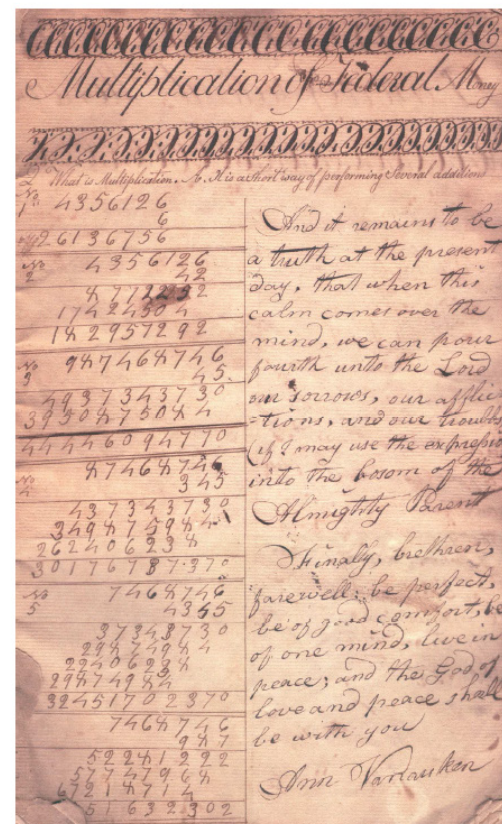 Multiplication of Federal Money
Q What is Multiplication. A. It is a short way of performing Several additions
No 1 4356126
6
26136756
No 2 4356126
42
8712252
17424504
182957292
No 3 987468746
45
4937343730
3950875084
44446094770
No 4 87468746
345
437343730
349874984
262406238
30176737370
No 5 7468746
4345
37343730
29874984
22406238
29874984
32451702370
7468746
987
52281222
57747968
67218714
51632302
And it remains to be
a truth at the present
day, that when this
calm comes over the
mind, we can pour
fourth unto the Lord
our sorrows, our afflic
=tions, and our troubles
(if I may use the expressio
into the bosom of the
Almighty Parent
Finally, brethren,
farewell; be perfect,
be of good comfort, be
of one mind, live in
peace; and the God of
love and peace shall
be with you
Ann Vanauken